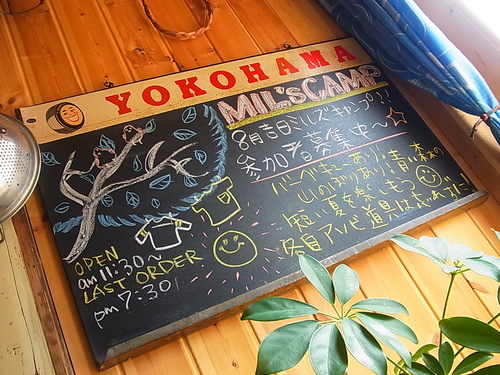 YOKOHAMA
MIL'S CAMP
8月吉日ミルズキャンプ!!
参加者募集中〜☆
バーベキューあり、青い森の
山のぼりあり
短い夏を楽しもう
各自アソビ道具は
OPEN
am 11:30~
LAST ORDER
pm 7:30